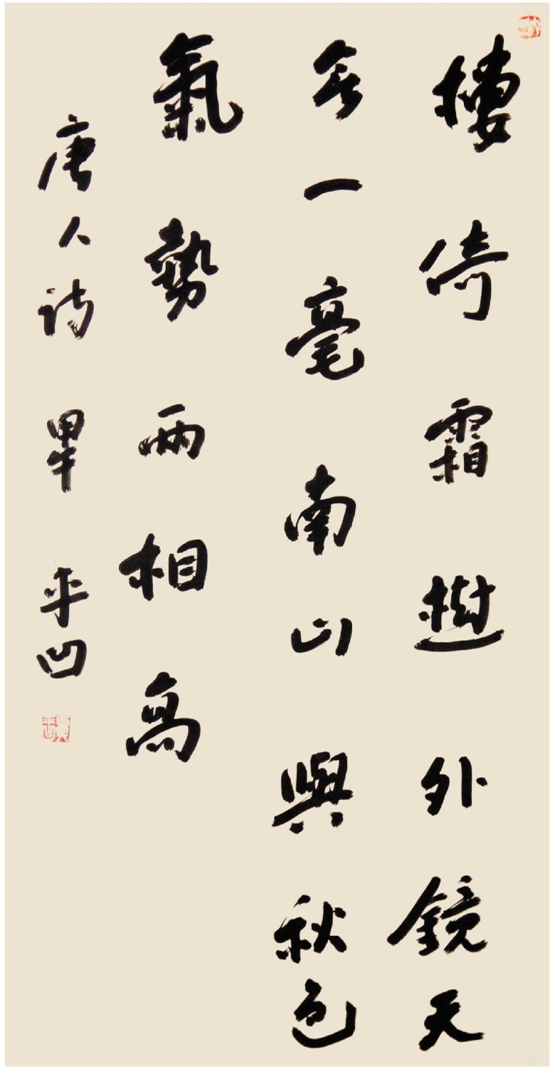 樓倚霜樹外鏡天
無一毫南山與秋色
氣勢兩相高
唐人詩 畢 平凹